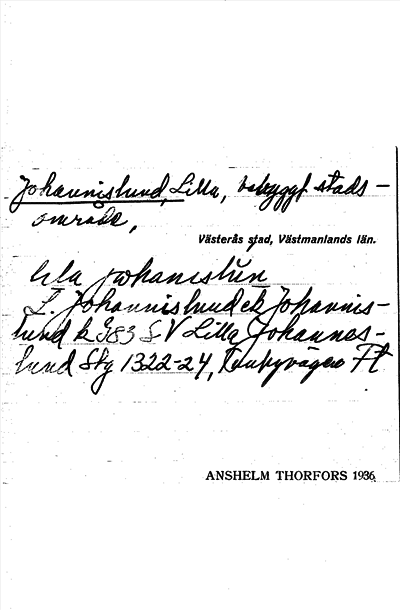 Johannislund, Lilla, bebyggt stads-
område,
Västerås stad, Västmanlands län.
lila johanislun
L. Johannislund ek Johannis-
lund k 983 S V Lilla Johannes-
lund Stg 1322-24, Flt
ANSHELM THORFORS 1936